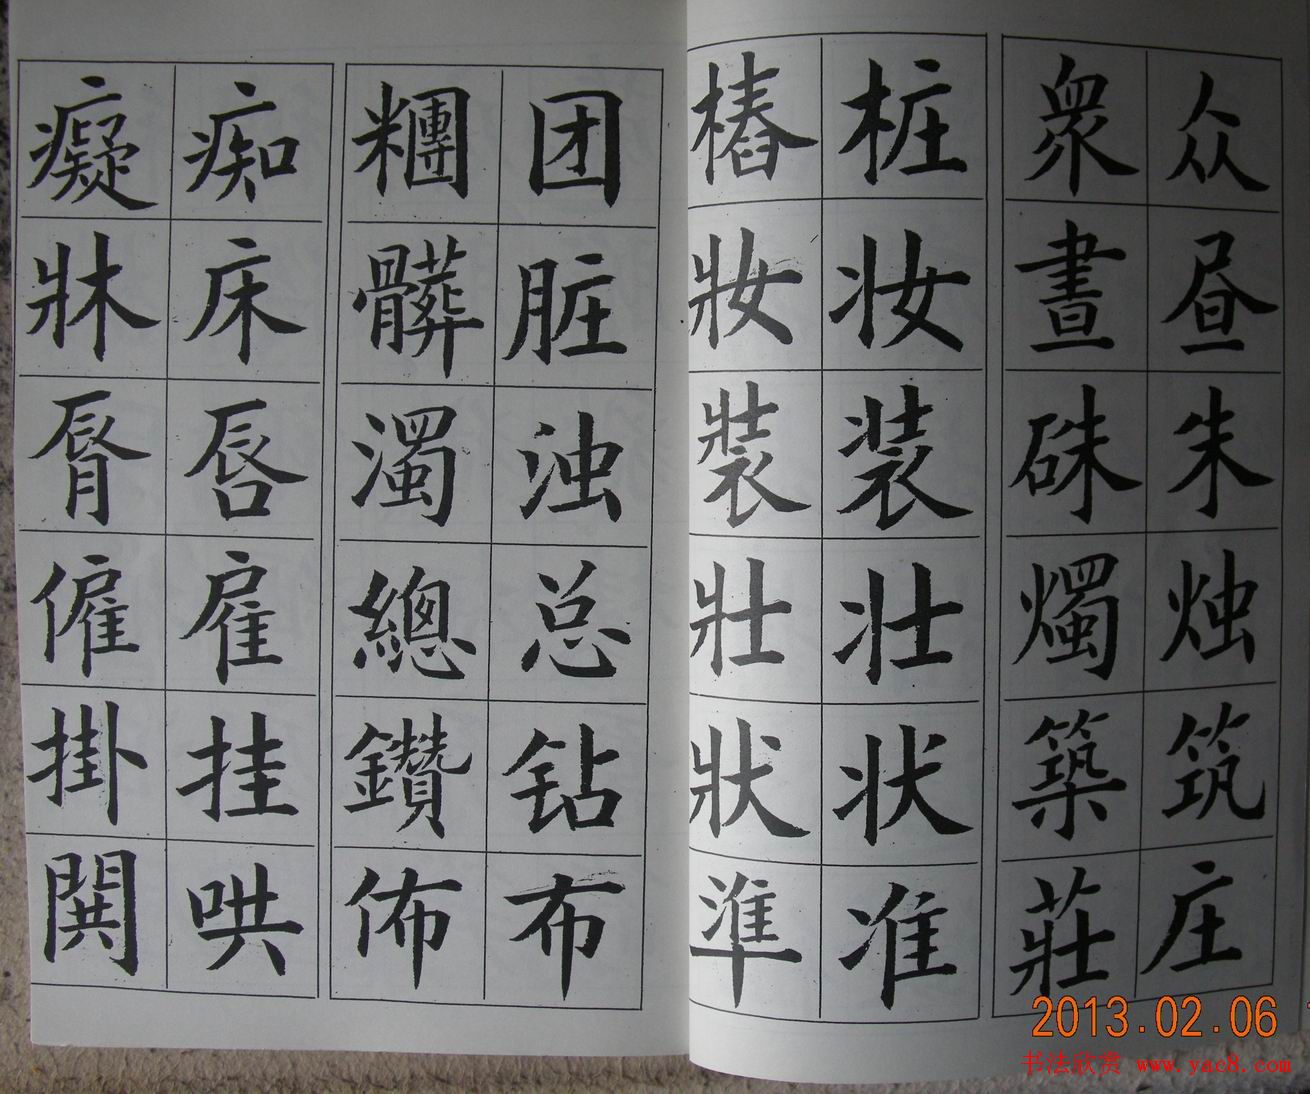 众衆
昼晝
朱硃
烛燭
筑築
庄莊
桩樁
妆妝
装裝
壮壯
状狀
准準
团糰
脏髒
浊濁
总總
钻鑽
布佈
痴癡
床牀
唇脣
雇僱
挂掛
哄閧
2013.02.06
书法欣赏 www.yac8.com